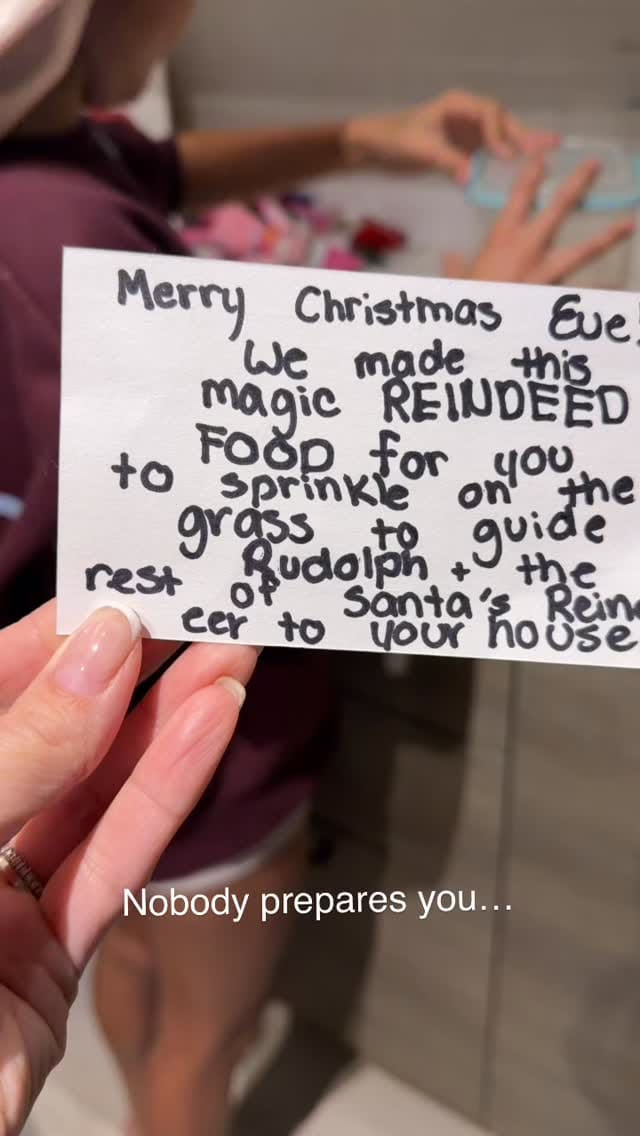 Merry Christmas Eve!
We made this
magic REINDEED
FOOD for you
to sprinkle on the
grass to guide
Rudolph + the
rest of Santa's Rein
eer to your house
Nobody prepares you...